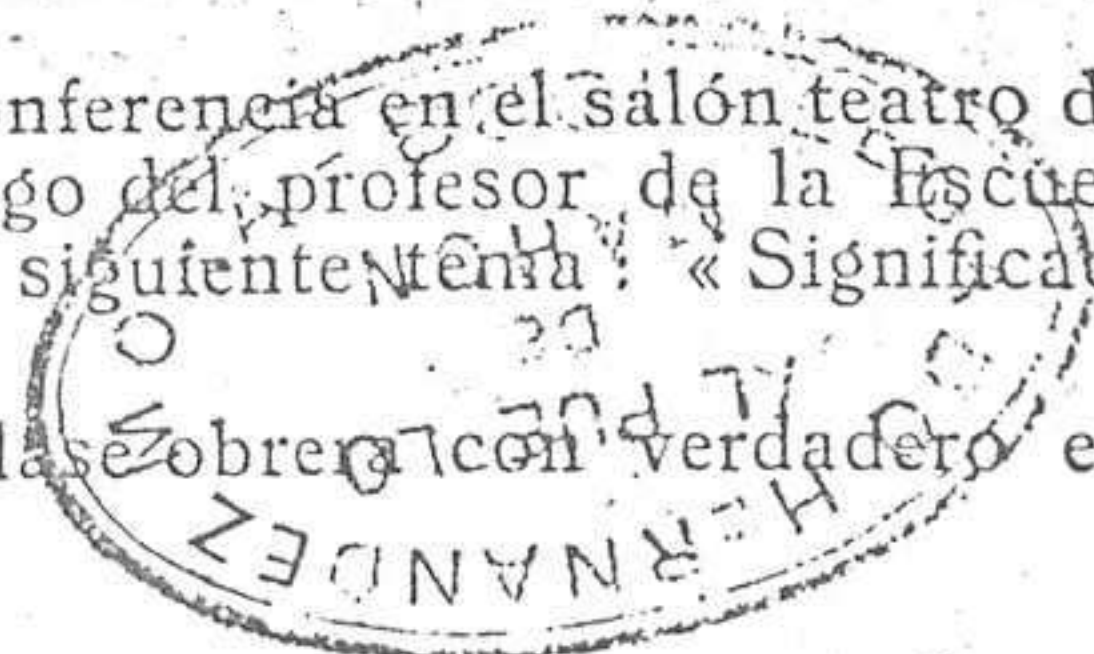 nferencia en el salón teatro d
go del profesor de la Escue
siguiente tema: « Significa
lase obrera con verdadero e
HERNANDEZ